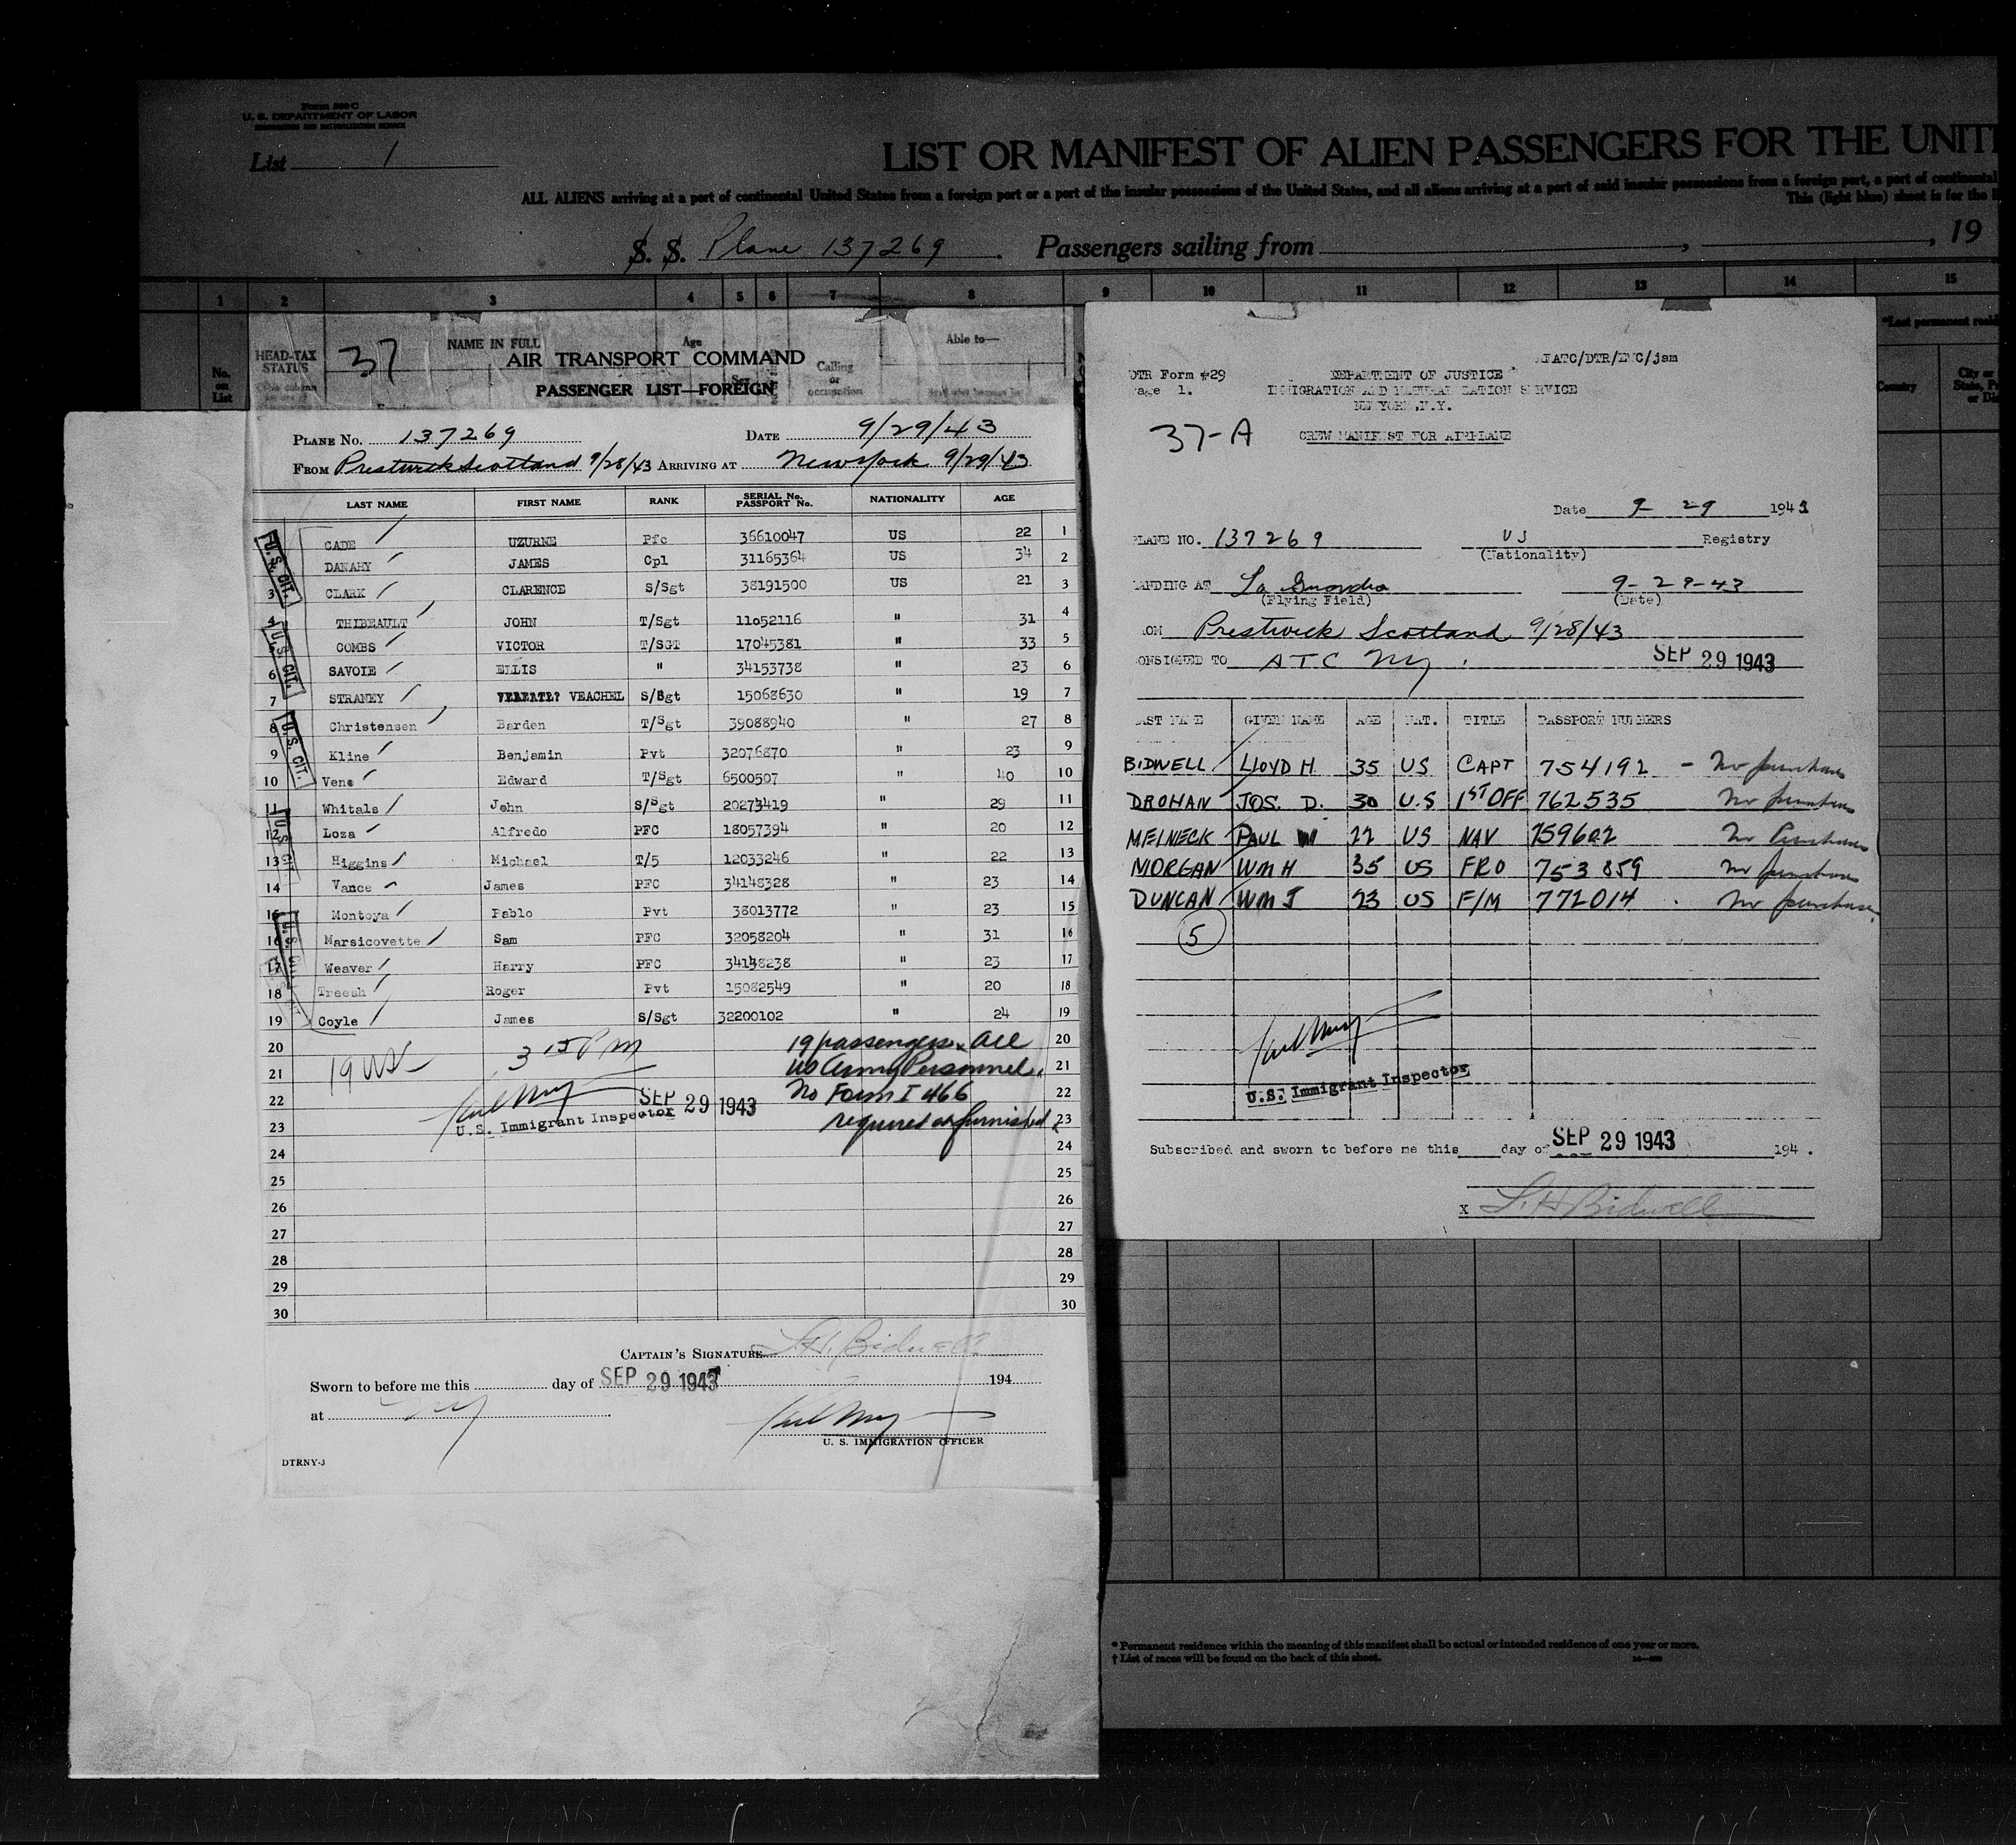 Form 500-C
U. S. DEPARTMENT OF LABOR
IMMIGRATION AND NATURALIZATION SERVICE
List 1
LIST OR MANIFEST OF ALIEN PASSENGERS FOR THE UNIT
ALL ALIENS arriving at a port of continental United States from a foreign port or a port of the insular possessions of the United States, and all aliens arriving at a port of said insular possessions from a foreign port, a port of continental
This (light blue) sheet is for the
S. S. Plane 137269. Passengers sailing from , , 19
1 2 3 4 5 6 7 8 9 10 11 12 13 14 15
HEAD-TAX STATUS
No. on List
NAME IN FULL
Age
Sex
Calling or occupation
Able to—
*Last permanent
Country
37
AIR TRANSPORT COMMAND
PASSENGER LIST—FOREIGN
PLANE No. 137269 DATE 9/29/43
FROM Prestwick Scotland 9/28/43 ARRIVING AT New York 9/29/43
LAST NAME FIRST NAME RANK SERIAL No. PASSPORT No. NATIONALITY AGE
CADE UZURNE Pfc 36610047 US 22 1
DANAHY JAMES Cpl 31165364 US 34 2
3 CLARK CLARENCE S/Sgt 38191500 US 21 3
4 THIBEAULT JOHN T/Sgt 11052116 " 31 4
COMBS VICTOR T/SGT 17045381 " 33 5
6 SAVOIE ELLIS " 34153738 " 23 6
7 STRANEY VEACHEL S/Sgt 15068630 " 19 7
8 Christensen Barden T/Sgt 39088940 " 27 8
9 Kline Benjamin Pvt 32076870 " 23 9
10 Vene Edward T/Sgt 6500507 " 40 10
11 Whitals John S/Sgt 20273419 " 29 11
12 Loza Alfredo PFC 18057394 " 20 12
13 Higgins Michael T/5 12033246 " 22 13
14 Vance James PFC 34148328 " 23 14
15 Montoya Pablo Pvt 38013772 " 23 15
16 Marsicovette Sam PFC 32058204 " 31 16
17 Weaver Harry PFC 34148238 " 23 17
18 Treesh Roger Pvt 15082549 " 20 18
19 Coyle James S/Sgt 32200102 " 24 19
U.S. CIT.
U.S. CIT.
U.S. CIT.
20 3 15 PM 19 passengers. All 20
21 19 US US Army Personnel. 21
22 SEP 29 1943 No Form I 466 22
23 U.S. Immigrant Inspector required or furnished. 23
24 24
25 25
26 26
27 27
28 28
29 29
30 30
CAPTAIN'S SIGNATURE L. H. Bidwell
Sworn to before me this day of SEP 29 1943 194
at NY
U. S. IMMIGRATION OFFICER
DTRNY-3
ATC/DTR/EMC/jam
DTR Form #29
Page 1.
DEPARTMENT OF JUSTICE
IMMIGRATION AND NATURALIZATION SERVICE
NEW YORK, N.Y.
37-A
CREW MANIFEST FOR AIRPLANE
Date 9- 29 1943
PLANE NO. 137269 US Registry
(Nationality)
LANDING AT La Guardia 9-29-43
(Flying Field) (Date)
FROM Prestwick Scotland 9/28/43
CONSIGNED TO ATC NY. SEP 29 1943
LAST NAME GIVEN NAME AGE NAT. TITLE PASSPORT NUMBERS
BIDWELL LLOYD H 35 US CAPT 754192 - No purchases
DROHAN JOS. D. 30 U.S 1ST OFF 762535 No purchases
MELNECK PAUL 22 US NAV 759602 No Purchases
MORGAN WM H 35 US FRO 753859 No purchases
DUNCAN WM J 23 US F/M 772014 No purchases
5
U.S. Immigrant Inspector
Subscribed and sworn to before me this day of SEP 29 1943 194 .
X L. H. Bidwell
* Permanent residence within the meaning of this manifest shall be actual or intended residence of one year or more.
† List of races will be found on the back of this sheet.